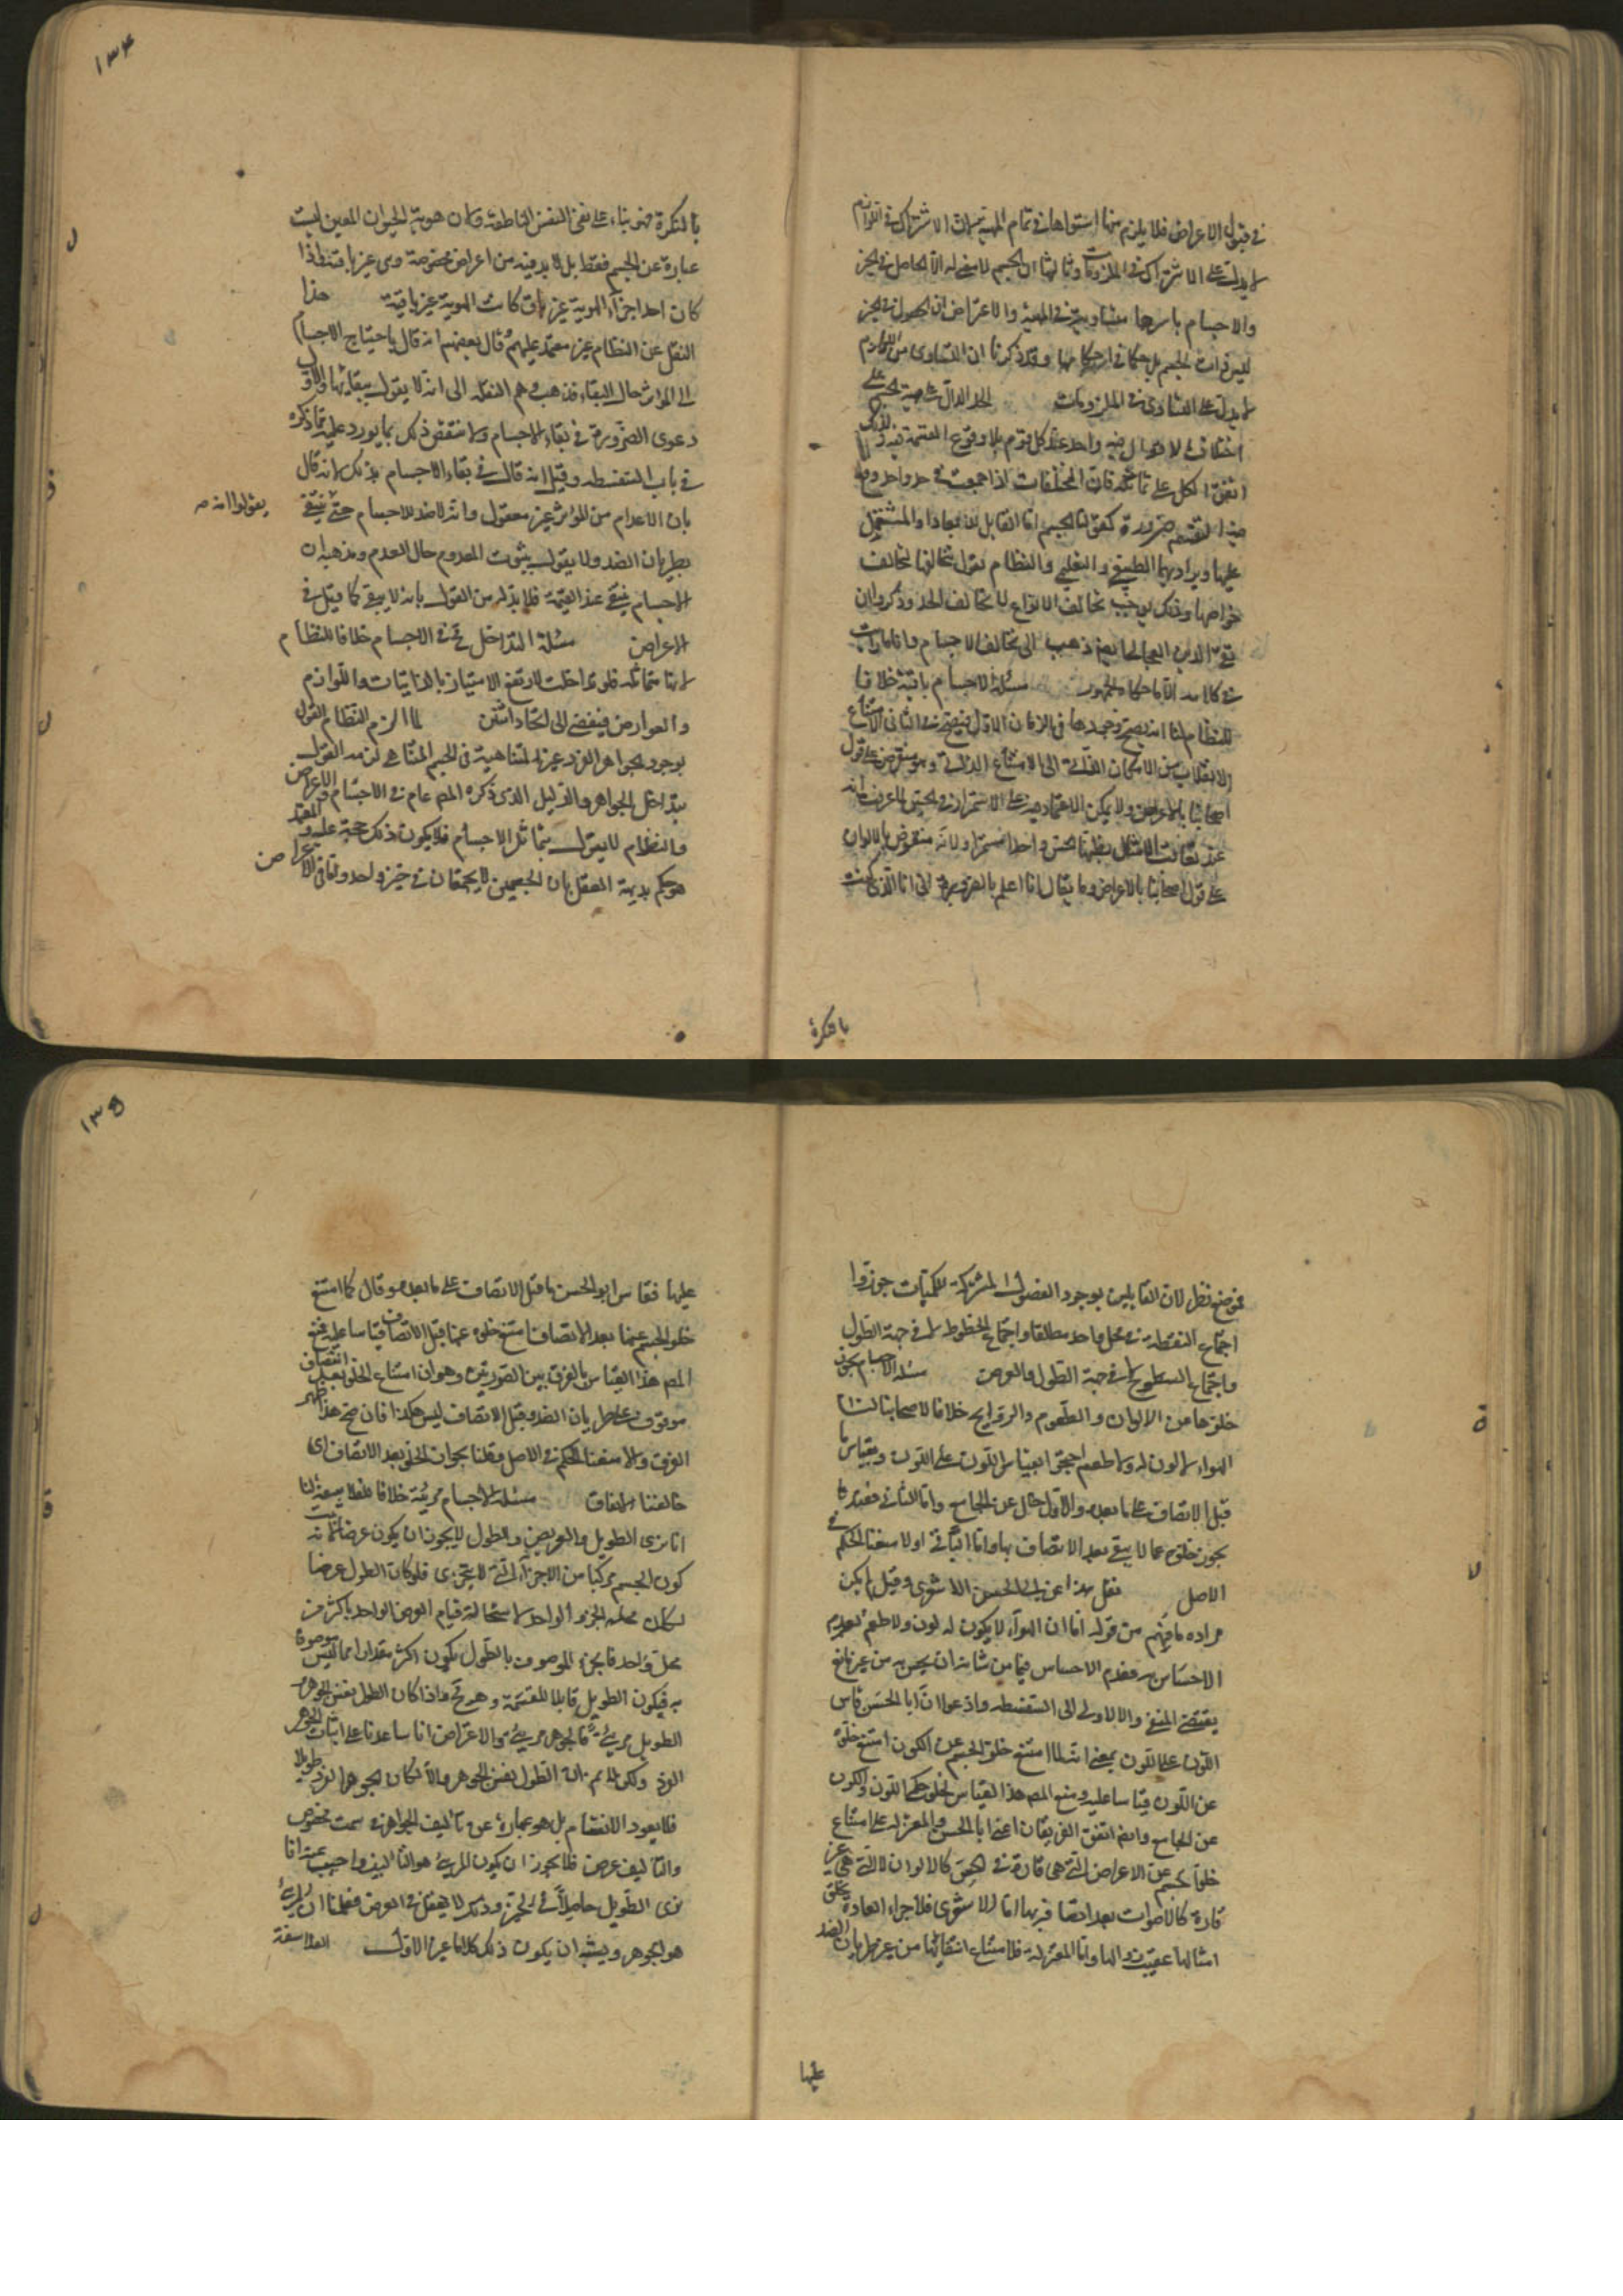 في قبول الاعراض فلا يلزم منها استواها في تمام المهية لان الاشتراك في اللوازم
لا يدل على الاشتراك في الملزومات وثالثها ان الجسم لا معنى له الا الحاصل في الحيز
والاجسام باسرها متساوية في المهية والاعتراض ان الحصول في الحيز
ليس ذات الجسم بل حكما من احكامها وقد ذكرنا ان التساوى من اللوازم
لا يدل على التساوى في الملزومات الحد الدال على مهية الجسم على
اختلاف الاقوال فيه واحد عند كل قوم بلا وقوع القسمة فيه فلذلك
اتفق الكل على تماثله فان المختلفات اذا جمعت في حد واحد وقع
فيه التقسيم ضرورة كقولنا الجسم اما القابل للابعاد او المشتمل
عليها ويراد بهما الطبيعي والتعليمي والنظام يقول بتخالفها لتخالف
خواصها وذلك يوجب تخالف الانواع لا تخالف الحد وذكر ان
تقى الدين العجالى ايضا ذهب الى تخالف الاجسام وانا ما رايت
في كلامه الا ما حكاه الجمهور مسئلة الاجسام باقية خلافا
للنظام لنا انه يصح وجودها في الزمان الاول فيصح في الثانى لامتناع
الانقلاب من الامكان الذاتى الى الامتناع الذاتى وهو منقوض على قول
اصحابنا بالاعراض ولا يمكن الاعتماد فيه على الاستمرار في الحس لما عرفت انه
عند تعاقب الامثال يظنها الحس واحدا مستمرا ولانه منقوض بالالوان
على قول اصحابنا بالاعراض وما يقال انا اعلم بالضرورة انى انا الذى كنت
بالنكرة
١٣٤
بالنكرة فهو بناء على نفى النفس الناطقة ولان هوية الحيوان المعين ليست
عبارة عن الجسم فقط بل لا بد فيه من اعراض مخصوصة وهى غير باقية فاذا
كان احد اجزاء الهوية غير باق كانت الهوية غير باقية هذا
النقل عن النظام غير معتمد عليه قال بعضهم انه قال باحتياج الاجسام
الى المؤثر حال البقاء فذهب وهم النقلة الى انه لا يقول ببقائها والاولى
دعوى الضرورة في بقاء الاجسام ولا ينتقض ذلك بما يورد عليه مما ذكره
في باب السفسطة وقيل انه قال في بقاء الاجسام بذلك لانه قال
بان الاعدام من المؤثر غير معقول وانه لا ضد للاجسام حتى ينتفى
يقولوا انه صح
بطريان الضد ولا يقول بثبوت المعدوم حال العدم ومذهبه ان
الاجسام ينتفى عند القيمة فلا بد له من القول بانه لا يبقى كما قيل في
الاعراض مسئلة التداخل محال في الاجسام خلافا للنظام
لانها متماثلة فلو تداخلت لارتفع الامتياز بالذاتيات واللوازم
والعوارض فيفضى الى اتحاد اثنين لما الزم النظام القول
بوجود الجواهر الفرد غير المتناهية في الجسم المتناهى لزمه القول
بتداخل الجواهر والدليل الذى ذكره المص عام في الاجسام والاعراض
والنظام لا يقول بتماثل الاجسام فلا يكون ذلك حجة عليه والمعتمد
هو حكم بديهة العقل بان الجسمين لا يجتمعان في حيز واحد واما في الاعراض
فموضع نظر لان القايلين بوجود الفصول المشتركة للكميات جوزوا
اجتماع النقطة في محل واحد مطلقا واجتماع الخطوط لا في جهة الطول
واجتماع السطوح لا في جهة الطول والعرض مسئلة الاجسام يجوز
خلوها من الالوان والطعوم والروايح خلافا لاصحابنا لنا
الهواء لا لون له ولا طعم احتجوا بقياس اللون على الكون وبقياس ما
قبل الاتصاف على ما بعده والاول خال عن الجامع واما الثانى فعندنا
يجوز خلوه عما لا يبقى بعد الاتصاف بها واما الباقى او لا منعنا الحكم في
الاصل نقل هذا عن ابى الحسن الاشعرى وقيل لم يكن
مراده ما فهم من قوله اما ان الهواء لا يكون له لون ولا طعم لعدم
الاحساس به فعدم الاحساس فيما من شانه ان يحس به من غير مانع
يقتضى المنفى والا لادى الى السفسطة وادعوا ان ابا الحسن قاس
اللون على الكون بمعنى انه لما امتنع خلو الجسم عن الكون امتنع خلوه
عن اللون قياسا عليه ومنع المص هذا القياس لخلو حكم اللون والكون
عن الجامع وايضا اتفق الفريقان اعنى ابا الحسن والمعتزلة على امتناع
خلو الجسم عن الاعراض التى هى قارة في الحس كالالوان لا التى هى غير
قارة كالاصوات بعد اتصافه بها اما الاشعرى فلاجراء العادة بخلق
امثالها عقيب زوالها واما المعتزلة فلامتناع انتفائها من غير طريان الضد
عليها
١٣٥
عليها فقاس ابو الحسن ما قبل الاتصاف على ما بعده وقال كما امتنع
خلو الجسم عنها بعد الاتصاف امتنع خلوه عنها قبل الاتصاف قياسا عليه فمنع
المص هذا القياس بالفرق بين الصورتين وهو ان امتناع الخلو بعد الاتصاف
موقوف على طريان الضد وقبل الاتصاف ليس هكذا فان صح هذا ظهر
الفرق والا منعنا الحكم في الاصل وقلنا بجواز الخلو بعد الاتصاف اى
خالفنا الاتفاق مسئلة الاجسام مرئية خلافا للفلاسفة لنا
انا نرى الطويل والعريض والطول لا يجوز ان يكون عرضا لما ثبت
كون الجسم مركبا من الاجزاء التى لا يتجزى فلو كان الطول عرضا
لكان محله الجزء الواحد لاستحالة قيام العرض الواحد باكثر من
محل واحد فالجزء الموصوف بالطول يكون اكثر مقدارا مما ليس موصوفا
به فيكون الطويل قابلا للقسمة وهو مح واذا كان الطول نفس الجوهر
الطويل مرئى فالجوهر مرئى والاعتراض انا ساعدنا على اثبات الجوهر
الفرد ولكن لم ان الطول نفس الجوهر والا لكان الجوهر الفرد طويلا
فلا يعود الانقسام بل هو عبارة عن تاليف الجواهر في سمت مخصوص
والتاليف عرض فلا يجوز ان يكون المرئى هو التاليف واجيب عنه انا
نرى الطويل حاصلا في الحيز وذلك لا يعقل في العرض فعلمنا ان المرئى
هو الجوهر ويشبه ان يكون ذلك كلاما غير الاول الفلاسفة